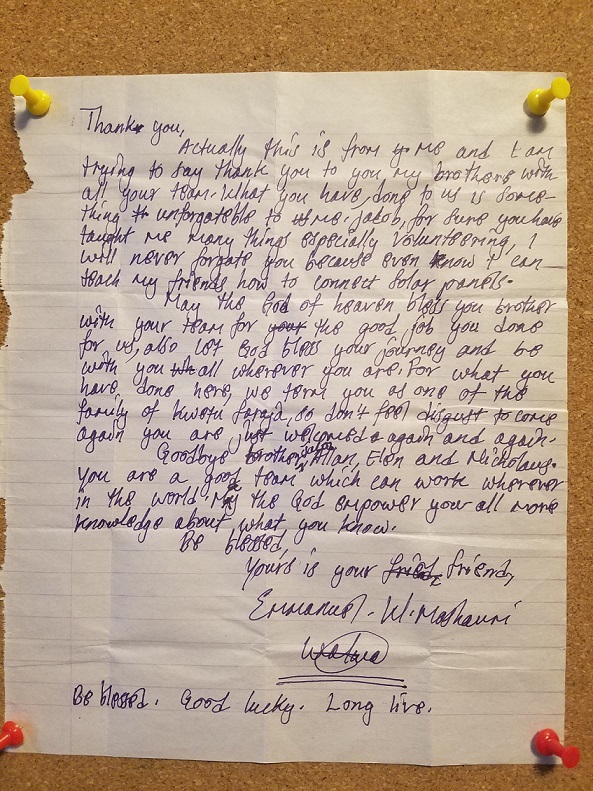 Thank you,
Actually this is from me and I am
trying to say thank you to you my brothers with
all your team. What you have done to us is some-
thing unforgateble to me. Jakob, for sure you have
taught me many things especially Volunteering, I
will never forgate you because even know I can
teach my friends how to connect solar panels.
May the God of heaven bless you brother
with your team for the good job you done
for us, also let God bless your journey and be
with you all wherever you are. For what you
have, done here, we term you as one of the
family of Kwetu Faraja, so don't feel disgust to come
again you are just welcomed again and again.
Goodbye brother Allan, Elen and Nicholaus.
You are a good team which can work wherever
in the world. May the God empower your all more
knowledge about what you know.
Be blessed,
Yours is your friend,
Emmanuel. W. Mashauri
Be blessed. Good lucky. Long live.